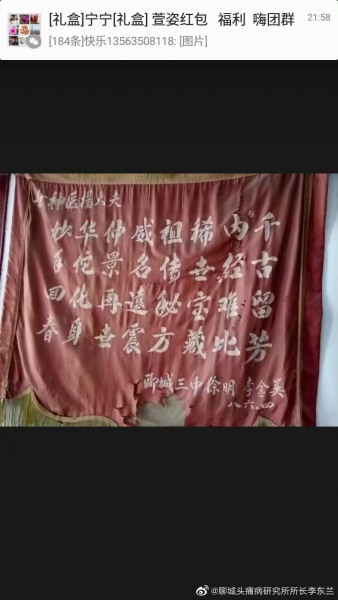 [礼盒]宁宁[礼盒] 萱姿红包 福利 嗨团群
21:58
[184条]快乐13563508118: [图片]
女神医杨大夫
妙手回春
华佗化身
仲景再世
威名遠震
祖传秘方
稀世宝藏
内经难比
千古留芳
聊城三中徐明 李金英
八六.四
@聊城头痛病研究所所长李东兰